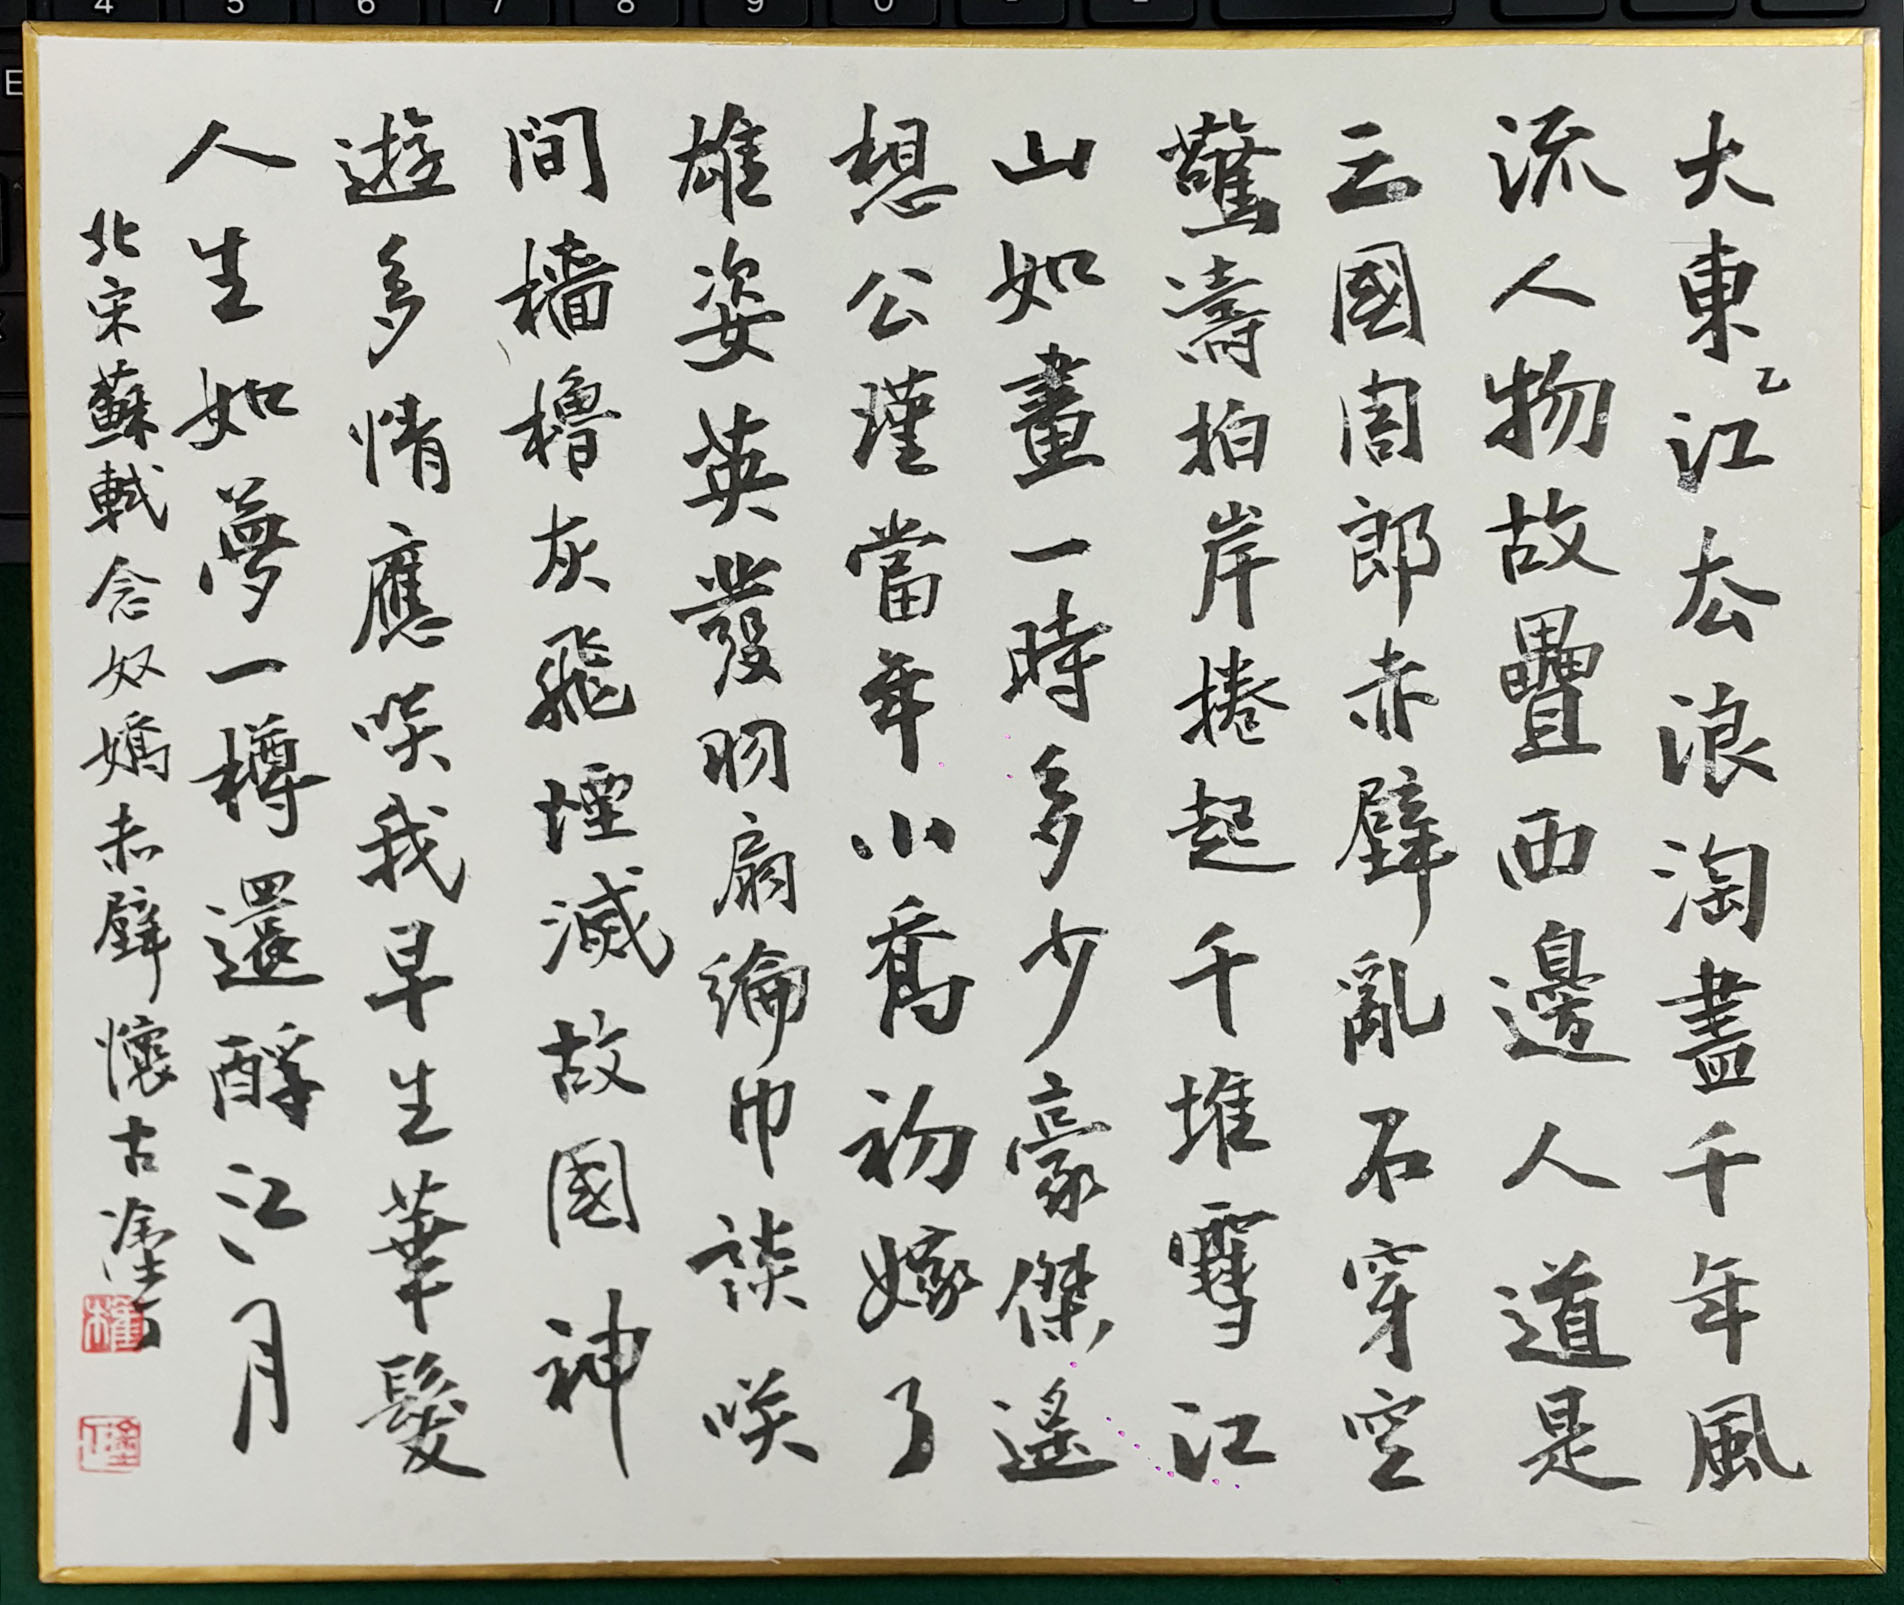 大東江去浪淘盡千年風
流人物故疊西邊人道是
三國周郎赤壁亂石穿空
驚濤拍岸捲起千堆雪江
山如畫一時多少豪傑遙
想公瑾當年小喬初嫁了
雄姿英發羽扇綸巾談咲
間檣櫓灰飛煙滅故國神
遊多情應咲我早生華髮
人生如夢一樽還酹江月
北宋蘇軾念奴嬌赤壁懷古
4 5 6 7 8 9 0
E